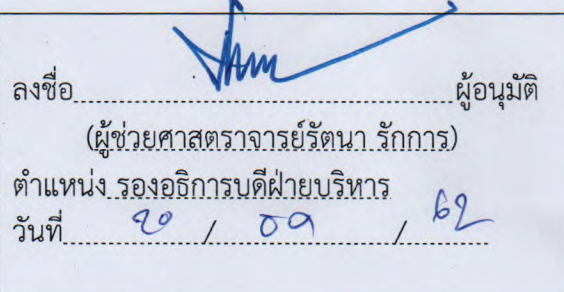 ลงชื่อ........................ผู้อนุมัติ
(ผู้ช่วยศาสตราจารย์รัตนา รักการ)
ตำแหน่ง รองอธิการบดีฝ่ายบริหาร
วันที่ ๒๐ / / 62